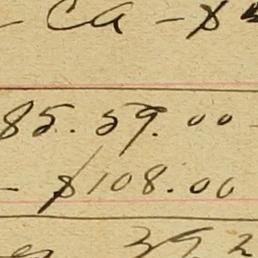 - Ca - $
85.59.00 -
- $108.00